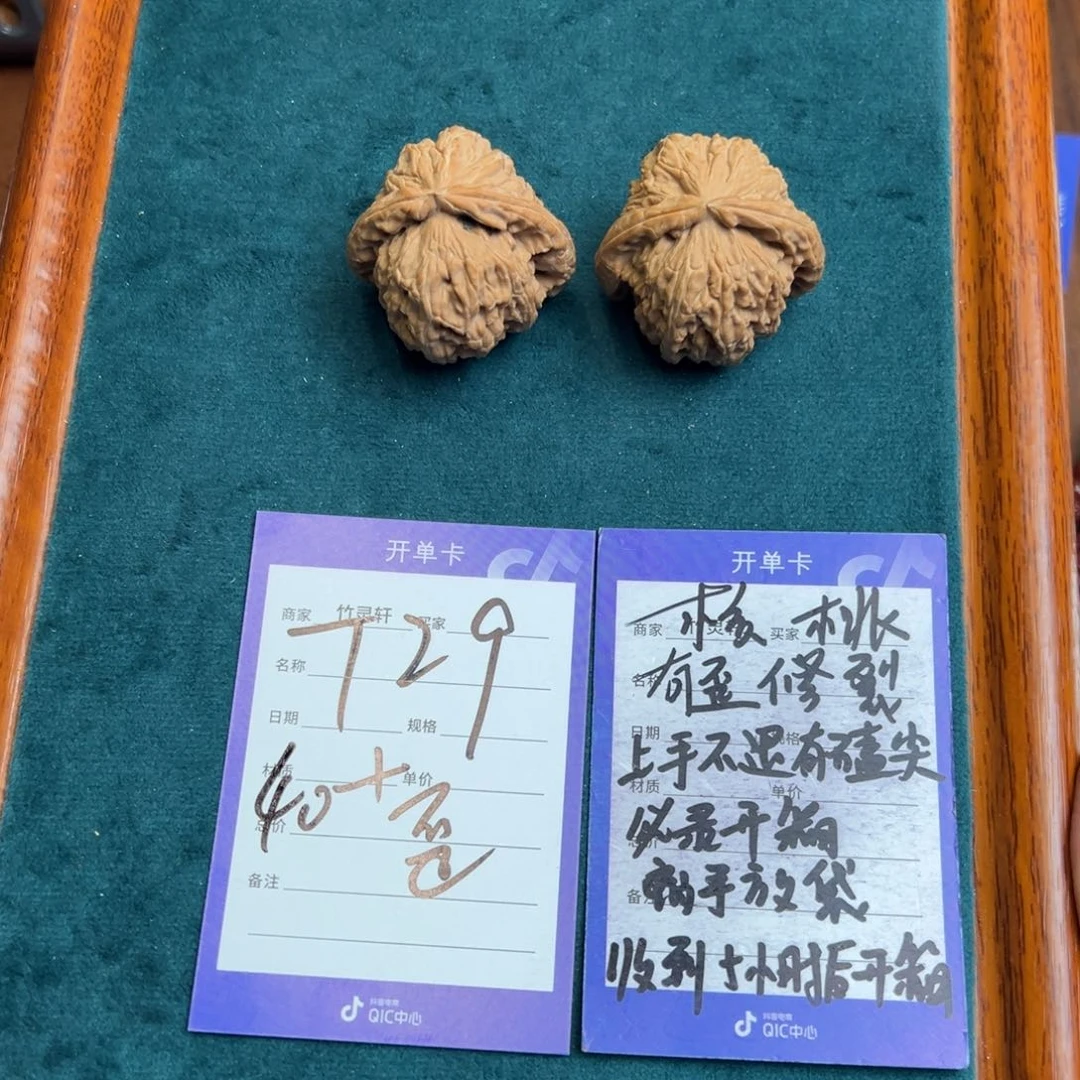 开单卡
商家 竹灵轩 买家
T29
名称
日期 规格
材质 单价
40+歪
总价
备注
抖音电商
QIC中心
开单卡
商家 买家
核桃
名称
有歪修裂
日期
上手不退有磕尖
材质 单价
必录开箱
备
手放袋
收到十小时后开箱
抖音电商
QIC中心